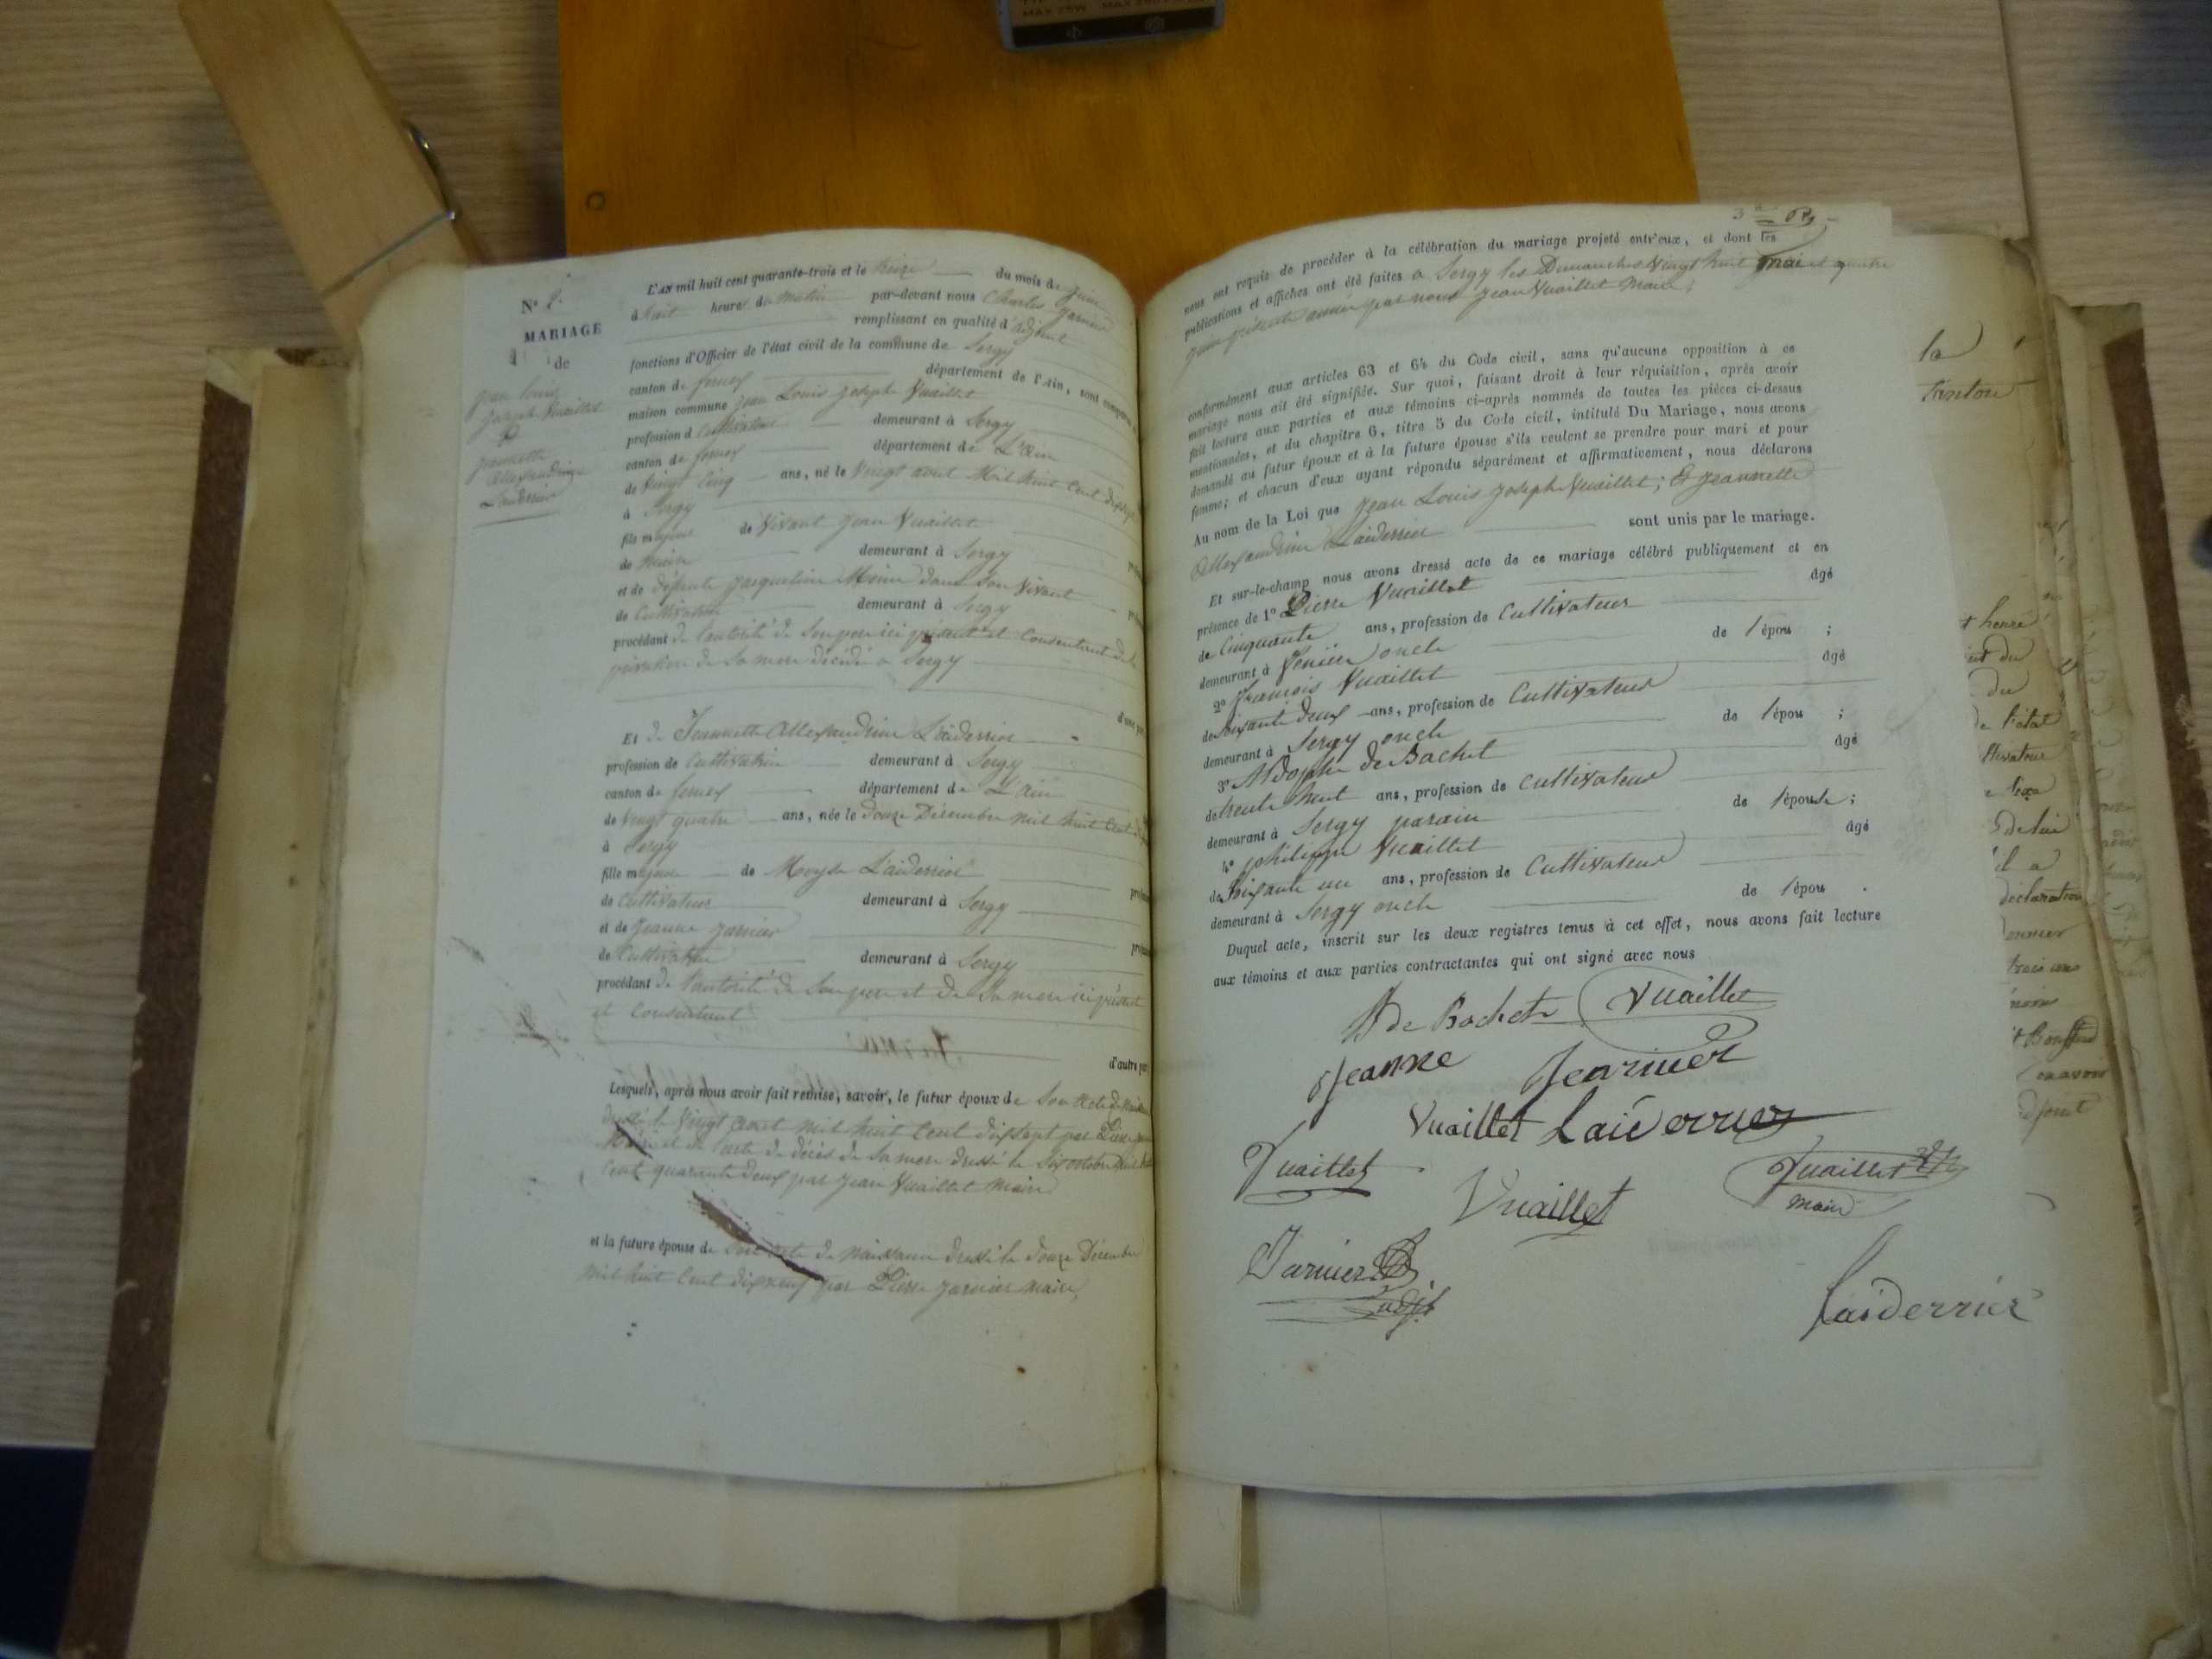 MAX 75W MAX 250
N° 2.
MARIAGE
de
Jean Louis
Joseph Vuaillet
&
Jeannette
Allexandrine
Laiderrier
L'AN mil huit cent quarante-trois et le treize du mois de Juin
à huit heures du matin par-devant nous Charles Garnier
remplissant en qualité d'adjoint
fonctions d'Officier de l'état civil de la commune de Sergy
canton de fernex département de l'Ain, sont comparus
maison commune Jean Louis Joseph Vuaillet
profession d Cultivateur demeurant à Sergy
canton de fernex département de L'Ain
de Vingt Cinq ans, né le Vingt aout Mil huit Cent dix sept
à Sergy
fils majeur de Vivant Jean Vuaillet
de maire demeurant à Sergy
et de défunte Jacqueline Moine dans son Vivant
de Cultivatrice demeurant à Sergy
procédant de l'autorité de Son pere ici présent et Consentant de
privation de Sa mere décédé a Sergy
d'une part
Et de Jeannette Allexandrine Laiderrier
profession de Cultivatrice demeurant à Sergy
canton de fernex département de L'Ain
de Vingt quatre ans, née le douze Décembre mil huit Cent
à Sergy
fille majeure de Moyse Laiderrier
de Cultivateur demeurant à Sergy
et de Jeanne Garnier
de Cultivatrice demeurant à Sergy
procédant de l'autorité de Son pere et de Sa mere ici présent
et Consentant
d'autre part
Lesquels, après nous avoir fait remise, savoir, le futur époux de Son acte de Naissance
dressé le Vingt aout mil huit Cent dix sept par Pierre
Maire et de l'acte de décès de Sa mere dressé le Six octobre mil huit
Cent quarante deux par Jean Vuaillet Maire
et la future épouse de Son acte de naissance dressé le douze Décembre
mil huit Cent dix neuf par Pierre Garnier maire,
3
nous ont requis de procéder à la célébration du mariage projeté entr'eux, et dont les
publications et affiches ont été faites a Sergy les Dimanches Vingt huit mai et quatre
Juin présente année par nous Jean Vuaillet Maire,
conformément aux articles 63 et 64 du Code civil, sans qu'aucune opposition à ce
mariage nous ait été signifiée. Sur quoi, faisant droit à leur réquisition, après avoir
fait lecture aux parties et aux témoins ci-après nommés de toutes les pièces ci-dessus
mentionnées, et du chapitre 6, titre 5 du Code civil, intitulé Du Mariage, nous avons
demandé au futur époux et à la future épouse s'ils veulent se prendre pour mari et pour
femme; et chacun d'eux ayant répondu séparément et affirmativement, nous déclarons
Au nom de la Loi que Jean Louis Joseph Vuaillet; & Jeannette
Allexandrine Laiderrier sont unis par le mariage.
Et sur-le-champ nous avons dressé acte de ce mariage célébré publiquement et en
présence de 1° Pierre Vuaillet âgé
de Cinquante ans, profession de Cultivateur
demeurant à Fenière oncle de l'épou ;
2° François Vuaillet âgé
de Soixante deux ans, profession de Cultivateur
demeurant à Sergy oncle de l'épou ;
3° Adolphe de Bachet âgé
de trente huit ans, profession de Cultivateur
demeurant à Sergy parain de l'épouse ;
4° philippe Vuaillet âgé
de Soixante un ans, profession de Cultivateur
demeurant à Sergy oncle de l'épou .
Duquel acte, inscrit sur les deux registres tenus à cet effet, nous avons fait lecture
aux témoins et aux parties contractantes qui ont signé avec nous
A de Bachet Vuaillet
Jeanne Jearnier
Vuaillet Laiderrier
Vuaillet
Vuaillet
Vuaillet
maire
Garnier
adjt
Laiderrier
la
Canton
heure
du
du
l'état
de lui
il a
déclaration
trois ans